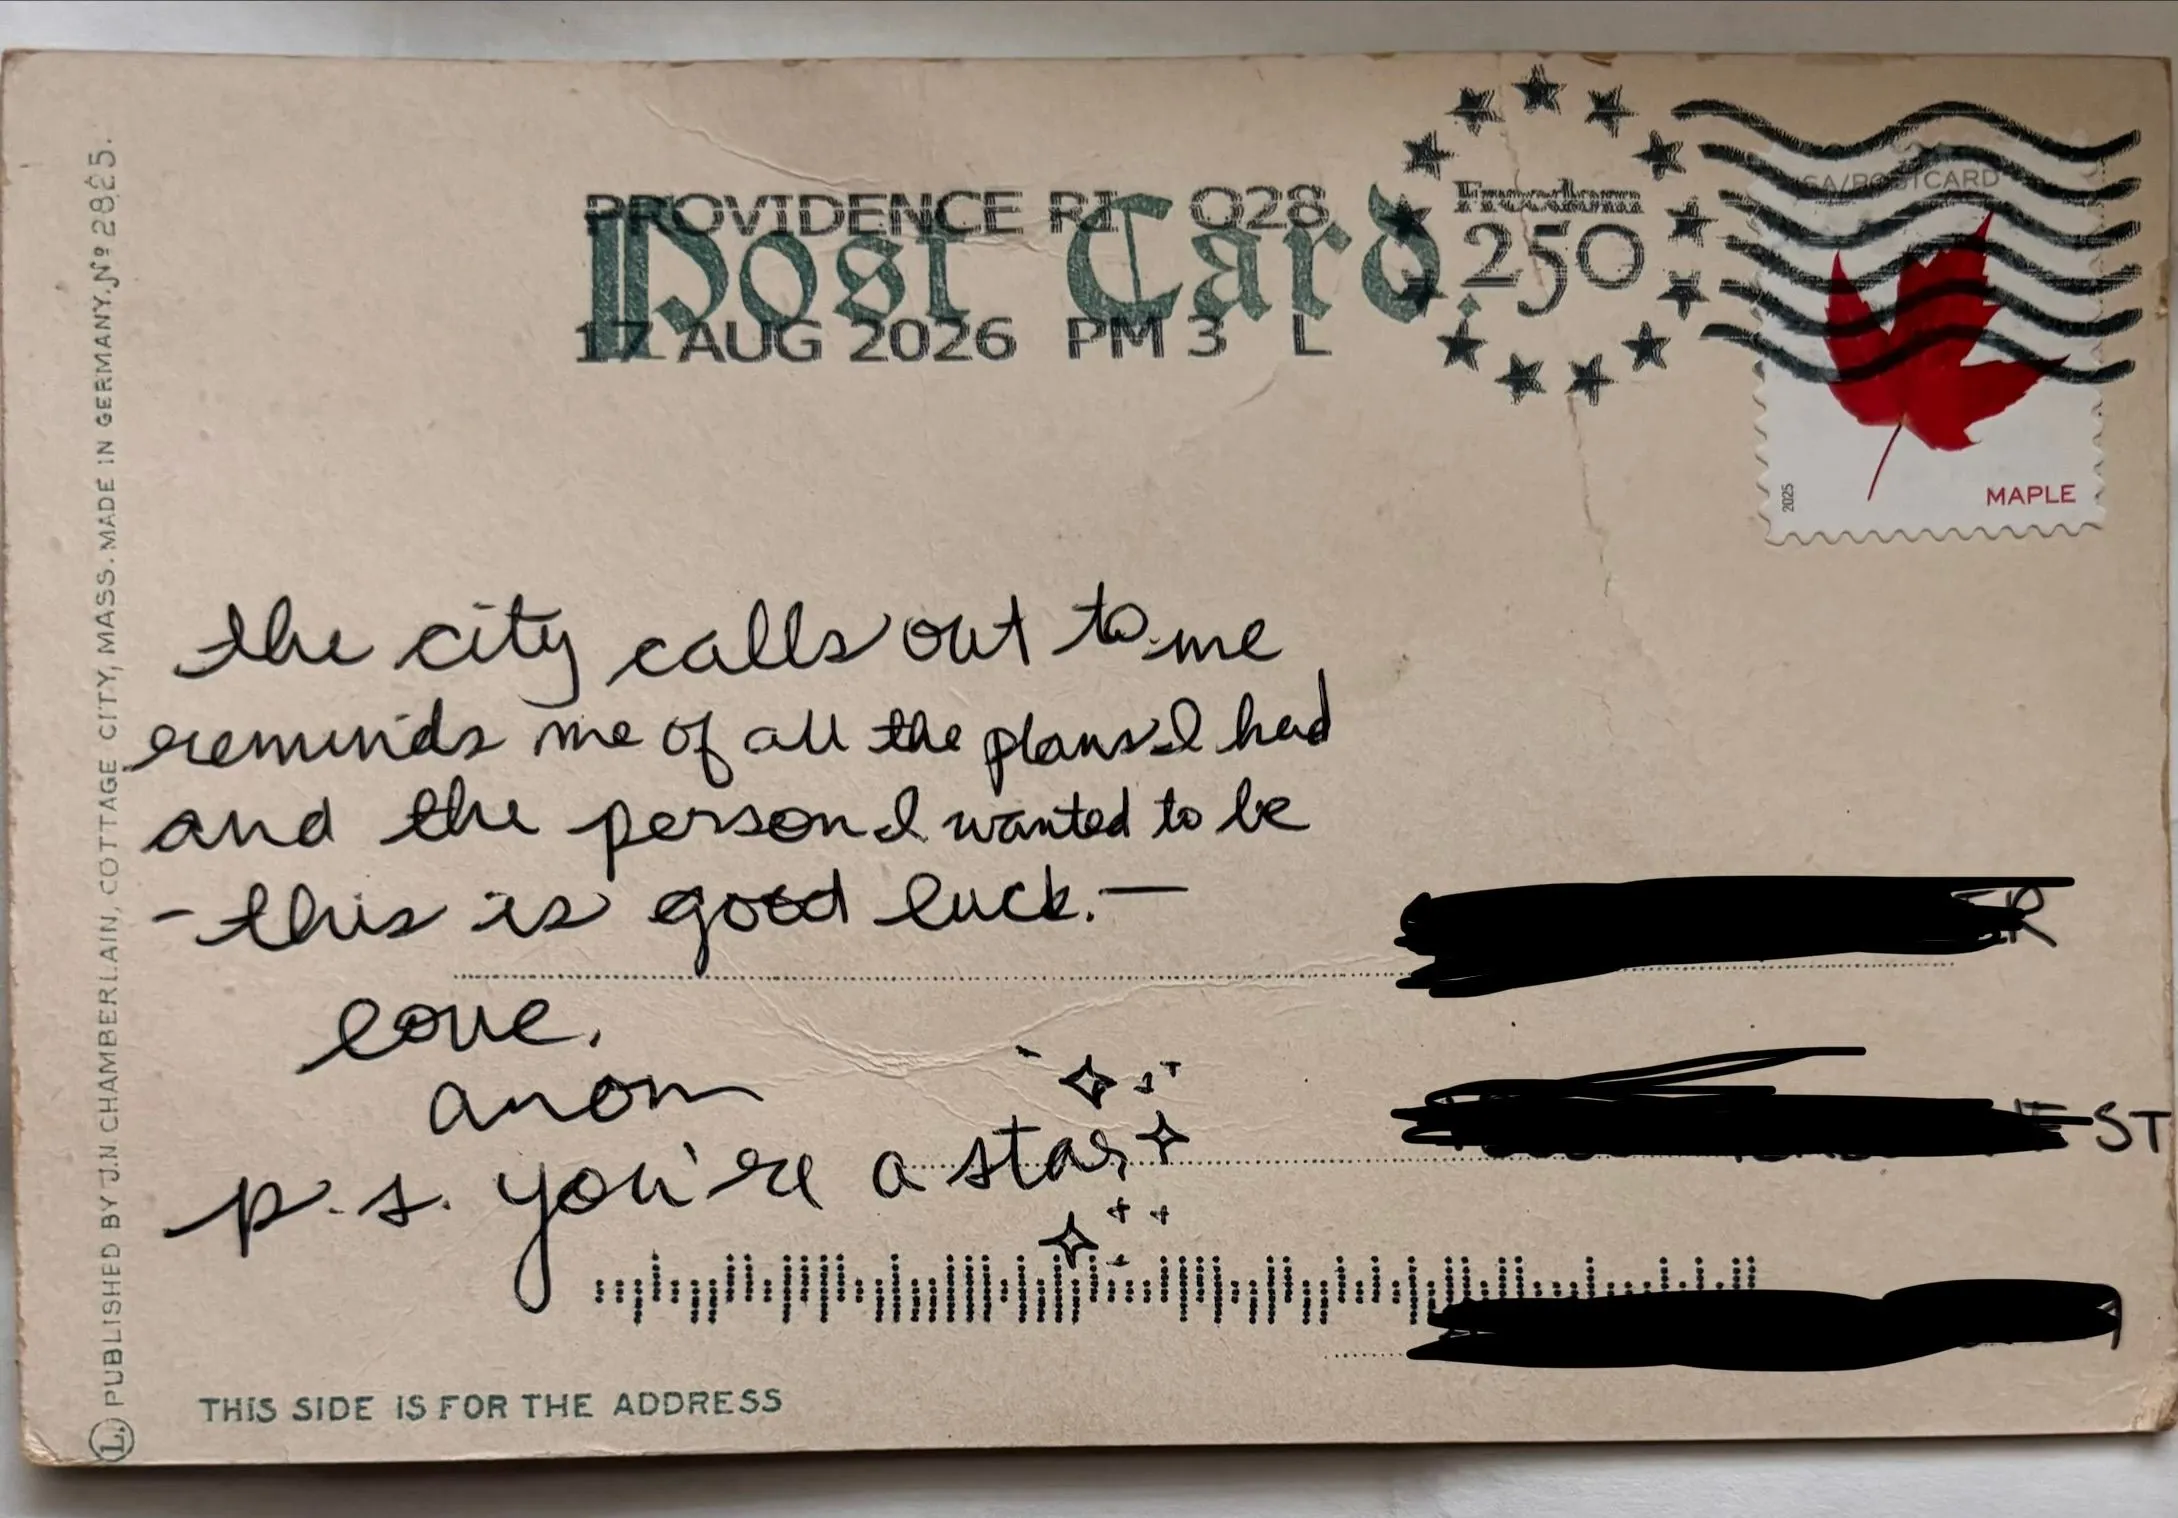 PROVIDENCE RI 028
Post Card.
17 AUG 2026 PM 3 L
Freedom
250
USA/POSTCARD
2025
MAPLE
the city calls out to me
reminds me of all the plans I had
and the person I wanted to be
- this is good luck. —
love,
anon
p.s. you're a star
ER
ST
THIS SIDE IS FOR THE ADDRESS
L. PUBLISHED BY J.N CHAMBERLAIN, COTTAGE CITY, MASS. MADE IN GERMANY. No 28825.